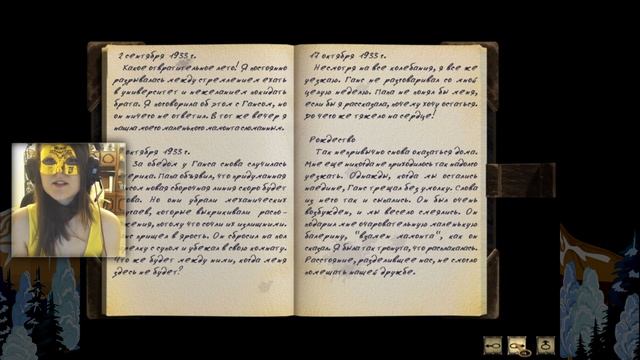 2 сентября 1933 г.
Какое отвратительное лето! Я постоянно
разрывалась между стремлением ехать
в университет и нежеланием покидать
брата. Я поговорила об этом с Гансом, но
он ничего не ответил. В тот же вечер я
нашла моего маленького мамонта сломанным.
октября 1933 г.
За обедом у Ганса снова случилась
Папа объявил, что придуманная
новая сборочная линия скоро будет
Но они убрали механических
которые выкрикивали распо-
потому что сочли их излишними.
пришел в ярость. Он сбросил на пол
с супом и убежал в свою комнату.
Что же будет между ними, когда меня
здесь не будет?
17 октября 1933 г.
Несмотря на все колебания, я все же
уезжаю. Ганс не разговаривал со мной
целую неделю. Папа не понял бы меня,
если бы я рассказала, почему хочу остаться.
До чего же тяжело на сердце!
Рождество
Так непривычно снова оказаться дома.
Мне еще никогда не приходилось так надолго
уезжать. Однажды, когда мы остались
наедине, Ганс трещал без умолку. Слова
из него так и сыпались. Он был очень
возбужден, и мы весело смеялись. Он
подарил мне очаровательную маленькую
балерину, "взамен мамонта", как он
сказал. Я была так тронута, что расплакалась.
Расстояние, разделившее нас, не смогло
помешать нашей дружбе.